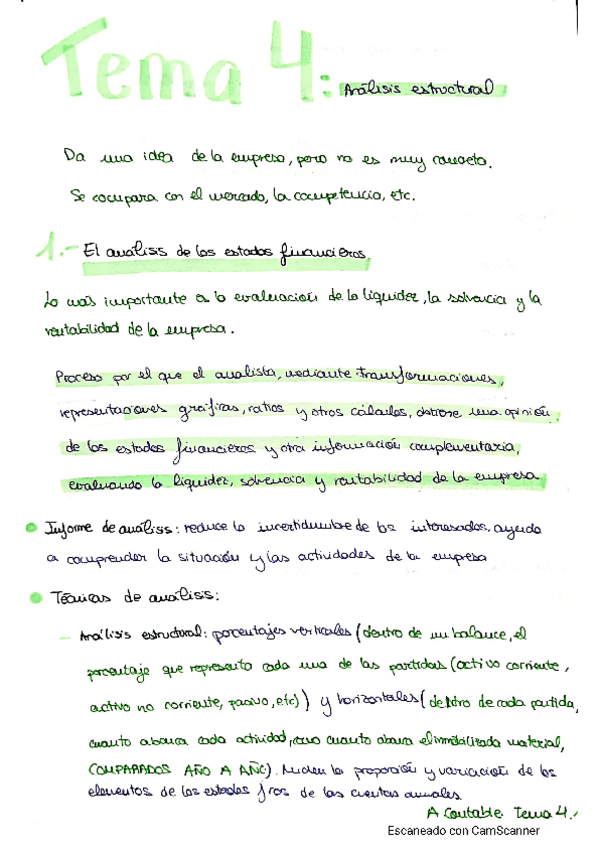 Tema 4: Análisis estructural
Da una idea de la empresa, pero no es muy concreta.
Se compara con el mercado, la competencia, etc.
1.- El análisis de los estados financieros.
Lo más importante es la evaluación de la liquidez, la solvencia y la
rentabilidad de la empresa.
Proceso por el que el analista, mediante transformaciones,
representaciones gráficas, ratios y otros cálculos, obtiene una opinión
de los estados financieros y otra información complementaria,
evaluando la liquidez, solvencia y rentabilidad de la empresa.
Informe de análisis: reduce la incertidumbre de los interesados, ayuda
a comprender la situación y las actividades de la empresa
Técnicas de análisis:
- Análisis estructural: porcentajes verticales (dentro de un balance, el
porcentaje que representa cada una de las partidas (activo corriente,
activo no corriente, pasivo, etc)) y horizontales (dentro de cada partida,
cuanto abarca cada actividad, cuanto abarca el inmobilizado material,
COMPARADOS AÑO A AÑO). Miden la proporción y variación de los
elementos de los estados fros de las cuentas anuales.
A Contable Tema 4.
Escaneado con CamScanner